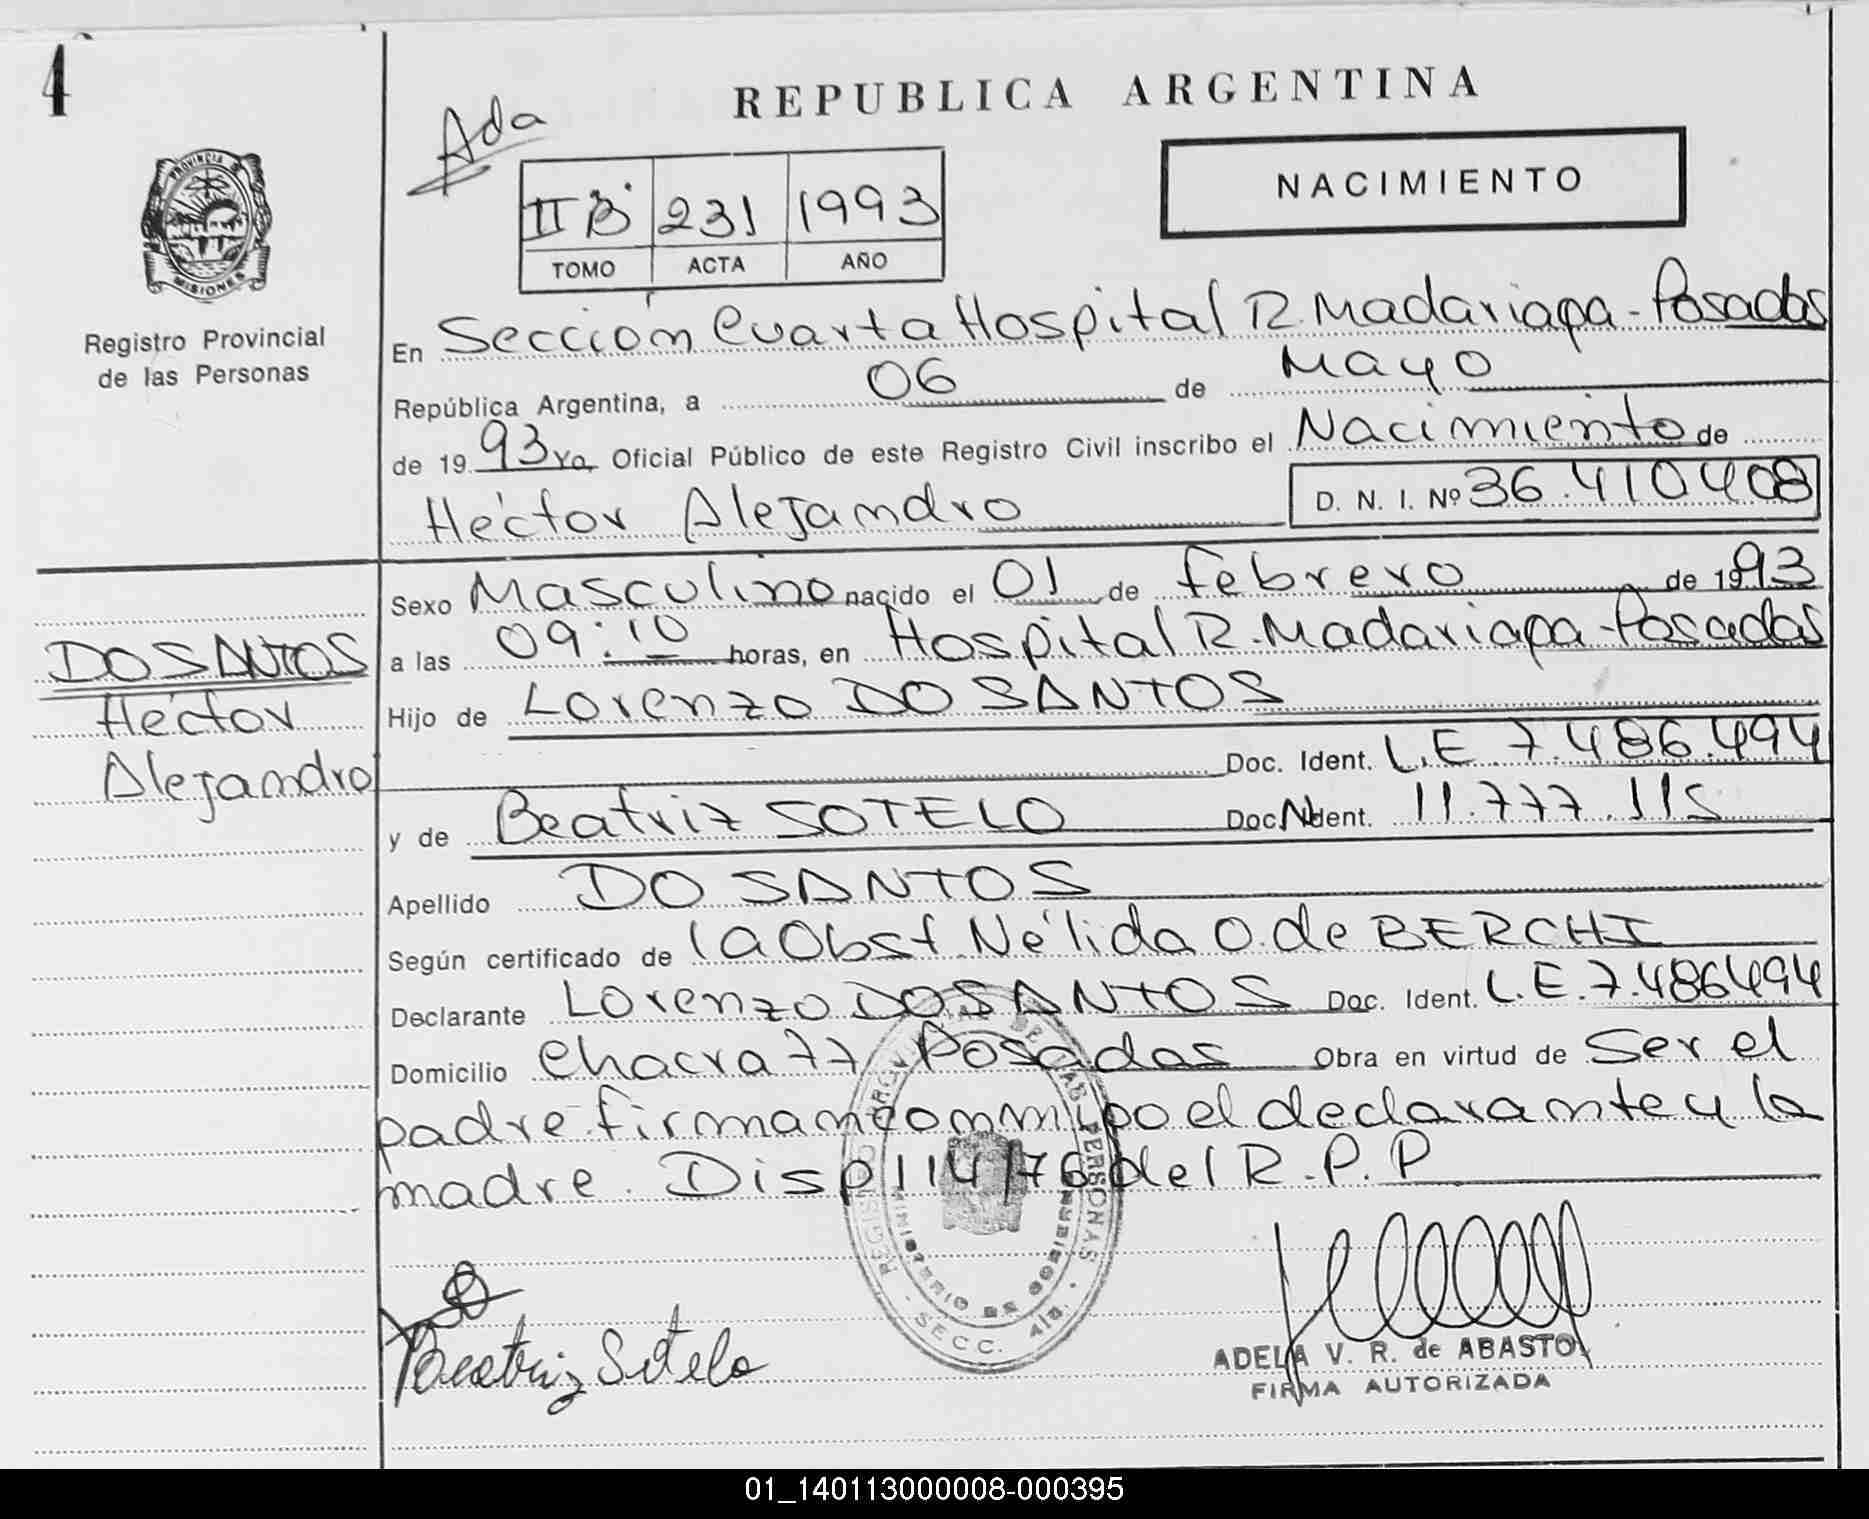 4
REPUBLICA ARGENTINA
Ada
NACIMIENTO
II B 231 1993
TOMO ACTA AÑO
PROVINCIA
MISIONES
Registro Provincial
de las Personas
En Sección Cuarta Hospital R. Madariaga - Posadas
República Argentina, a 06 de Mayo
de 19 93 Yo, Oficial Público de este Registro Civil inscribo el Nacimiento de
Héctor Alejandro D. N. I. Nº 36.410408
Sexo Masculino nacido el 01 de febrero de 1993
DO SANTOS
Héctor
Alejandro
a las 09:10 horas, en Hospital R. Madariaga - Posadas
Hijo de Lorenzo DO SANTOS
Doc. Ident. L.E 7.486.494
y de Beatriz SOTELO Doc. Ident. 11.777.115
Apellido DO SANTOS
Según certificado de la Obst. Nélida O. de BERCHI
Declarante Lorenzo DO SANTOS Doc. Ident. L.E.7.486494
Domicilio Chacra 77 Posadas Obra en virtud de Ser el
padre firman conmigo el declarante y la
madre. Disp 114/76 del R.P.P
REGISTRO PROVINCIAL DE LAS PERSONAS
MINISTERIO DE GOBIERNO
SECC. 4ta.
Beatriz Sotelo
ADELA V. R. de ABASTO
FIRMA AUTORIZADA
01_140113000008-000395